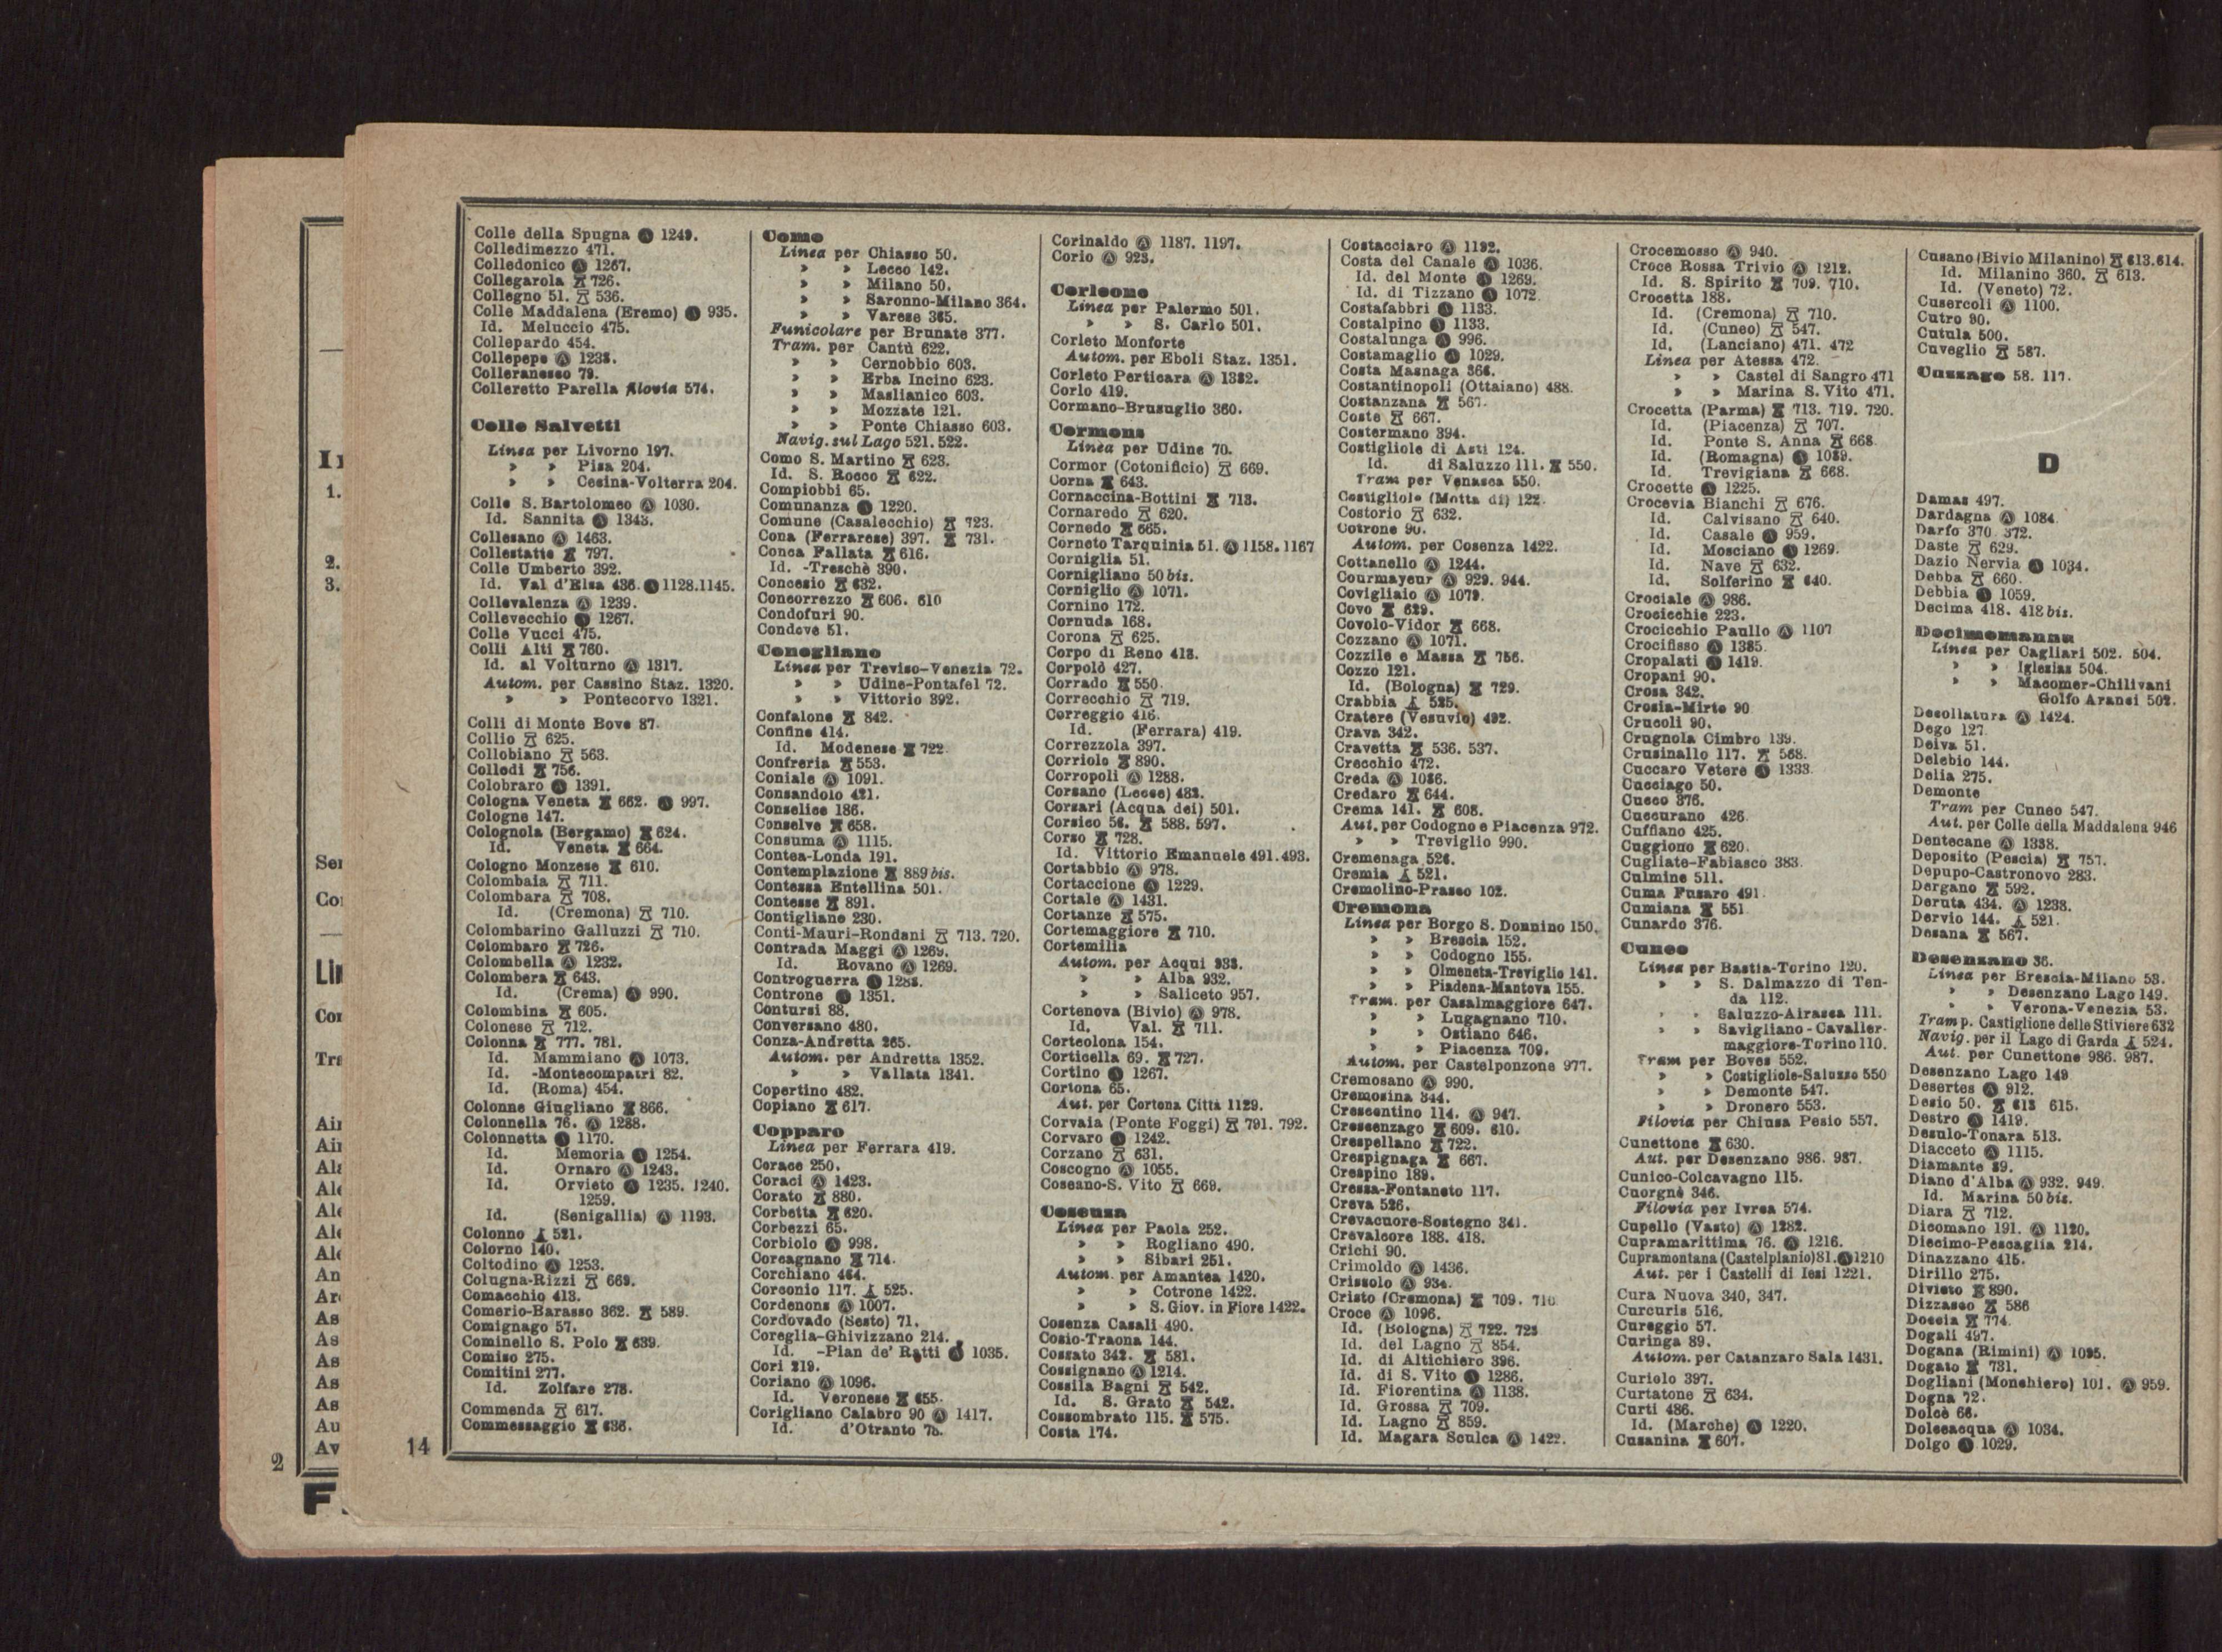 Colle della Spugna Ⓐ 1249.
Colledimezzo 471.
Colledonico Ⓐ 1267.
Collegarola 726.
Collegno 51. 536.
Colle Maddalena (Eremo) Ⓐ 935.
Id. Meluccio 475.
Collepardo 454.
Collepepe Ⓐ 1238.
Colleranesco 79.
Colleretto Parella filovia 574.
Colle Salvetti
Linea per Livorno 197.
» » Pisa 204.
» » Cesina-Volterra 204.
Colle S. Bartolomeo Ⓐ 1030.
Id. Sannita Ⓐ 1343.
Collesano Ⓐ 1463.
Collestatte 797.
Colle Umberto 392.
Id. Val d'Elsa 436. Ⓐ 1128.1145.
Collevalenza Ⓐ 1239.
Collevecchio Ⓐ 1267.
Colle Vucci 475.
Colli Alti 760.
Id. al Volturno Ⓐ 1317.
Autom. per Cassino Staz. 1320.
» » Pontecorvo 1321.
Colli di Monte Bove 87.
Collio 625.
Collobiano 563.
Collodi 756.
Colobraro Ⓐ 1391.
Cologna Veneta 662. Ⓐ 997.
Cologne 147.
Colognola (Bergamo) 624.
Id. Veneta 664.
Cologno Monzese 610.
Colombaia 711.
Colombara 708.
Id. (Cremona) 710.
Colombarino Galluzzi 710.
Colombaro 726.
Colombella Ⓐ 1232.
Colombera 643.
Id. (Crema) Ⓐ 990.
Colombina 605.
Colonese 712.
Colonna 777. 781.
Id. Mammiano Ⓐ 1073.
Id. -Montecompatri 82.
Id. (Roma) 454.
Colonne Giugliano 866.
Colonnella 76. Ⓐ 1288.
Colonnetta Ⓐ 1170.
Id. Memoria Ⓐ 1254.
Id. Ornaro Ⓐ 1243.
Id. Orvieto Ⓐ 1235. 1240.
1259.
Id. (Senigallia) Ⓐ 1193.
Colonno 521.
Colorno 140.
Coltodino Ⓐ 1253.
Colugna-Rizzi 669.
Comacchio 413.
Comerio-Barasso 362. 589.
Comignago 57.
Cominello S. Polo 639.
Comiso 275.
Comitini 277.
Id. Zolfare 278.
Commenda 617.
Commessaggio 636.
Como
Linea per Chiasso 50.
» » Lecco 142.
» » Milano 50.
» » Saronno-Milano 364.
» » Varese 365.
Funicolare per Brunate 377.
Tram. per Cantù 622.
» » Cernobbio 603.
» » Erba Incino 623.
» » Maslianico 603.
» » Mozzate 121.
» » Ponte Chiasso 603.
Navig. sul Lago 521. 522.
Como S. Martino 623.
Id. S. Rocco 622.
Compiobbi 65.
Comunanza Ⓐ 1220.
Comune (Casalecchio) 723.
Cona (Ferrarese) 397. 731.
Conca Fallata 616.
Id. -Treschè 390.
Concesio 632.
Concorrezzo 606. 610
Condofuri 90.
Condove 51.
Conegliano
Linea per Treviso-Venezia 72.
» » Udine-Pontafel 72.
» » Vittorio 392.
Confalone 842.
Confine 414.
Id. Modenese 722
Confreria 553.
Coniale Ⓐ 1091.
Consandolo 421.
Conselice 186.
Conselve 658.
Consuma Ⓐ 1115.
Contea-Londa 191.
Contemplazione 889 bis.
Contessa Entellina 501.
Contesse 891.
Contigliano 230.
Conti-Mauri-Rondani 713. 720.
Contrada Maggi Ⓐ 1269.
Id. Rovano Ⓐ 1269.
Controguerra Ⓐ 1288.
Controne Ⓐ 1351.
Contursi 88.
Conversano 480.
Conza-Andretta 265.
Autom. per Andretta 1352.
» » Vallata 1341.
Copertino 482.
Copiano 617.
Copparo
Linea per Ferrara 419.
Corace 250.
Coraci Ⓐ 1423.
Corato 880.
Corbetta 620.
Corbezzi 65.
Corbiolo Ⓐ 998.
Corcagnano 714.
Corchiano 464.
Corconio 117. 525.
Cordenons Ⓐ 1007.
Cordovado (Sesto) 71.
Coreglia-Ghivizzano 214.
Id. -Pian de' Ratti Ⓐ 1035.
Cori 219.
Coriano Ⓐ 1096.
Id. Veronese 655.
Corigliano Calabro 90 Ⓐ 1417.
Id. d'Otranto 78.
Corinaldo Ⓐ 1187. 1197.
Corio Ⓐ 923.
Corleone
Linea per Palermo 501.
» » S. Carlo 501.
Corleto Monforte
Autom. per Eboli Staz. 1351.
Corleto Perticara Ⓐ 1382.
Corlo 419.
Cormano-Brusuglio 360.
Cormons
Linea per Udine 70.
Cormor (Cotonificio) 669.
Corna 643.
Cornaccina-Bottini 713.
Cornaredo 620.
Cornedo 665.
Corneto Tarquinia 51. Ⓐ 1158. 1167
Corniglia 51.
Cornigliano 50 bis.
Corniglio Ⓐ 1071.
Cornino 172.
Cornuda 168.
Corona 625.
Corpo di Reno 418.
Corpolò 427.
Corrado 550.
Correcchio 719.
Correggio 416.
Id. (Ferrara) 419.
Correzzola 397.
Corriolo 890.
Corropoli Ⓐ 1288.
Corsano (Lecce) 483.
Corsari (Acqua dei) 501.
Corsico 56. 588. 597.
Corso 728.
Id. Vittorio Emanuele 491.493.
Cortabbio Ⓐ 978.
Cortaccione Ⓐ 1229.
Cortale Ⓐ 1431.
Cortanze 575.
Cortemaggiore 710.
Cortemilia
Autom. per Acqui 933.
» » Alba 932.
» » Saliceto 957.
Cortenova (Bivio) Ⓐ 978.
Id. Val. 711.
Corteolona 154.
Corticella 69. 727.
Cortino Ⓐ 1267.
Cortona 65.
Aut. per Cortona Città 1129.
Corvaia (Ponte Foggi) 791. 792.
Corvaro Ⓐ 1242.
Corzano 631.
Coscogno Ⓐ 1055.
Coseano-S. Vito 669.
Cosenza
Linea per Paola 252.
» » Rogliano 490.
» » Sibari 251.
Autom. per Amantea 1420.
» » Cotrone 1422.
» » S. Giov. in Fiore 1422.
Cosenza Casali 490.
Cosio-Traona 144.
Cossato 342. 581.
Cossignano Ⓐ 1214.
Cossila Bagni 542.
Id. S. Grato 542.
Cossombrato 115. 575.
Costa 174.
Costacciaro Ⓐ 1192.
Costa del Canale Ⓐ 1036.
Id. del Monte Ⓐ 1269.
Id. di Tizzano Ⓐ 1072.
Costafabbri Ⓐ 1133.
Costalpino Ⓐ 1133.
Costalunga Ⓐ 996.
Costamaglio Ⓐ 1029.
Costa Masnaga 366.
Costantinopoli (Ottaiano) 488.
Costanzana 567.
Coste 667.
Costermano 394.
Costigliole di Asti 124.
Id. di Saluzzo 111. 550.
Tram per Venasca 550.
Costigliole (Motta di) 122.
Costorio 632.
Cotrone 90.
Autom. per Cosenza 1422.
Cottanello Ⓐ 1244.
Courmayeur Ⓐ 929. 944.
Covigliaio Ⓐ 1079.
Covo 629.
Covolo-Vidor 668.
Cozzano Ⓐ 1071.
Cozzile e Massa 756.
Cozzo 121.
Id. (Bologna) 729.
Crabbia 525.
Cratere (Vesuvio) 492.
Crava 342.
Cravetta 536. 537.
Crecchio 472.
Creda Ⓐ 1086.
Credaro 644.
Crema 141. 608.
Aut. per Codogno e Piacenza 972.
» » Treviglio 990.
Cremenaga 526.
Cremia 521.
Cremolino-Prasco 102.
Cremona
Linea per Borgo S. Donnino 150.
» » Brescia 152.
» » Codogno 155.
» » Olmeneta-Treviglio 141.
» » Piadena-Mantova 155.
Tram. per Casalmaggiore 647.
» » Lugagnano 710.
» » Ostiano 646.
» » Piacenza 709.
Autom. per Castelponzone 977.
Cremosano Ⓐ 990.
Cremosina 344.
Crescentino 114. Ⓐ 947.
Crescenzago 609. 610.
Crespellano 722.
Crespignaga 667.
Crespino 189.
Cressa-Fontaneto 117.
Creva 526.
Crevacuore-Sostegno 341.
Crevalcore 188. 418.
Crichi 90.
Crimoldo Ⓐ 1436.
Crissolo Ⓐ 934.
Cristo (Cremona) 709. 710
Croce Ⓐ 1096.
Id. (Bologna) 722. 723
Id. del Lagno 854.
Id. di Altichiero 396.
Id. di S. Vito Ⓐ 1286.
Id. Fiorentina Ⓐ 1138.
Id. Grossa 709.
Id. Lagno 859.
Id. Magara Sculca Ⓐ 1422.
Crocemosso Ⓐ 940.
Croce Rossa Trivio Ⓐ 1212.
Id. S. Spirito 709. 710.
Crocetta 188.
Id. (Cremona) 710.
Id. (Cuneo) 547.
Id. (Lanciano) 471. 472
Linea per Atessa 472.
» » Castel di Sangro 471
» » Marina S. Vito 471.
Crocetta (Parma) 713. 719. 720.
Id. (Piacenza) 707.
Id. Ponte S. Anna 668.
Id. (Romagna) Ⓐ 1089.
Id. Trevigiana 668.
Crocette Ⓐ 1225.
Crocevia Bianchi 676.
Id. Calvisano 640.
Id. Casale Ⓐ 959.
Id. Mosciano Ⓐ 1269.
Id. Nave 632.
Id. Solferino 640.
Crociale Ⓐ 986.
Crocicchie 223.
Crocicchio Paullo Ⓐ 1107
Crocifisso Ⓐ 1385.
Cropalati Ⓐ 1419.
Cropani 90.
Crosa 342.
Crosia-Mirto 90
Crucoli 90.
Crugnola Cimbro 139.
Crusinallo 117. 568.
Cuccaro Vetere Ⓐ 1333.
Cucciago 50.
Cucco 376.
Cuccurano 426.
Cuffiano 425.
Cuggiono 620.
Cugliate-Fabiasco 383.
Culmine 511.
Cuma Fusaro 491.
Cumiana 551
Cunardo 376.
Cuneo
Linea per Bastia-Torino 120.
» » S. Dalmazzo di Ten-
da 112.
» » Saluzzo-Airasca 111.
» » Savigliano-Cavaller-
maggiore-Torino 110.
Tram per Boves 552.
» » Costigliole-Saluzzo 550
» » Demonte 547.
» » Dronero 553.
Filovia per Chiusa Pesio 557.
Cunettone 630.
Aut. per Desenzano 986. 987.
Cunico-Colcavagno 115.
Cuorgnè 346.
Filovia per Ivrea 574.
Cupello (Vasto) Ⓐ 1282.
Cupramarittima 76. Ⓐ 1216.
Cupramontana (Castelplanio) 81. Ⓐ 1210
Aut. per i Castelli di Iesi 1221.
Cura Nuova 340, 347.
Curcuris 516.
Cureggio 57.
Curinga 89.
Autom. per Catanzaro Sala 1431.
Curiolo 397.
Curtatone 634.
Curti 486.
Id. (Marche) Ⓐ 1220.
Cusanina 607.
Cusano (Bivio Milanino) 613.614.
Id. Milanino 360. 613.
Id. (Veneto) 72.
Cusercoli Ⓐ 1100.
Cutro 90.
Cutula 500.
Cuveglio 587.
Cuzzago 58. 117.
D
Damas 497.
Dardagna Ⓐ 1084
Darfo 370. 372.
Daste 629.
Dazio Nervia Ⓐ 1034.
Debba 660.
Debbia Ⓐ 1059.
Decima 418. 418 bis.
Decimomannu
Linea per Cagliari 502. 504.
» » Iglesias 504.
» » Macomer-Chilivani
Golfo Aranci 502.
Decollatura Ⓐ 1424.
Dego 127
Deiva 51.
Delebio 144.
Delia 275.
Demonte
Tram per Cuneo 547.
Aut. per Colle della Maddalena 946
Dentecane Ⓐ 1338.
Deposito (Pescia) 757.
Depupo-Castronovo 283.
Dergano 592.
Deruta 434. Ⓐ 1238.
Dervio 144. 521.
Desana 567.
Desenzano 36.
Linea per Brescia-Milano 53.
» » Desenzano Lago 149.
» » Verona-Venezia 53.
Tram p. Castiglione delle Stiviere 632
Navig. per il Lago di Garda 524.
Aut. per Cunettone 986. 987.
Desenzano Lago 149
Desertes Ⓐ 912.
Desio 50. 613 615.
Destro Ⓐ 1419.
Desulo-Tonara 513.
Diacceto Ⓐ 1115.
Diamante 89.
Diano d'Alba Ⓐ 932. 949.
Id. Marina 50 bis.
Diara 712.
Dicomano 191. Ⓐ 1120.
Diecimo-Pescaglia 214.
Dinazzano 415.
Dirillo 275.
Divieto 890.
Dizzasco 586
Doccia 774.
Dogali 497.
Dogana (Rimini) Ⓐ 1095.
Dogato 731.
Dogliani (Monchiero) 101. Ⓐ 959.
Dogna 72.
Dolcè 66.
Dolceacqua Ⓐ 1034.
Dolgo Ⓐ 1029.
14
2
1.
2.
3.
F.